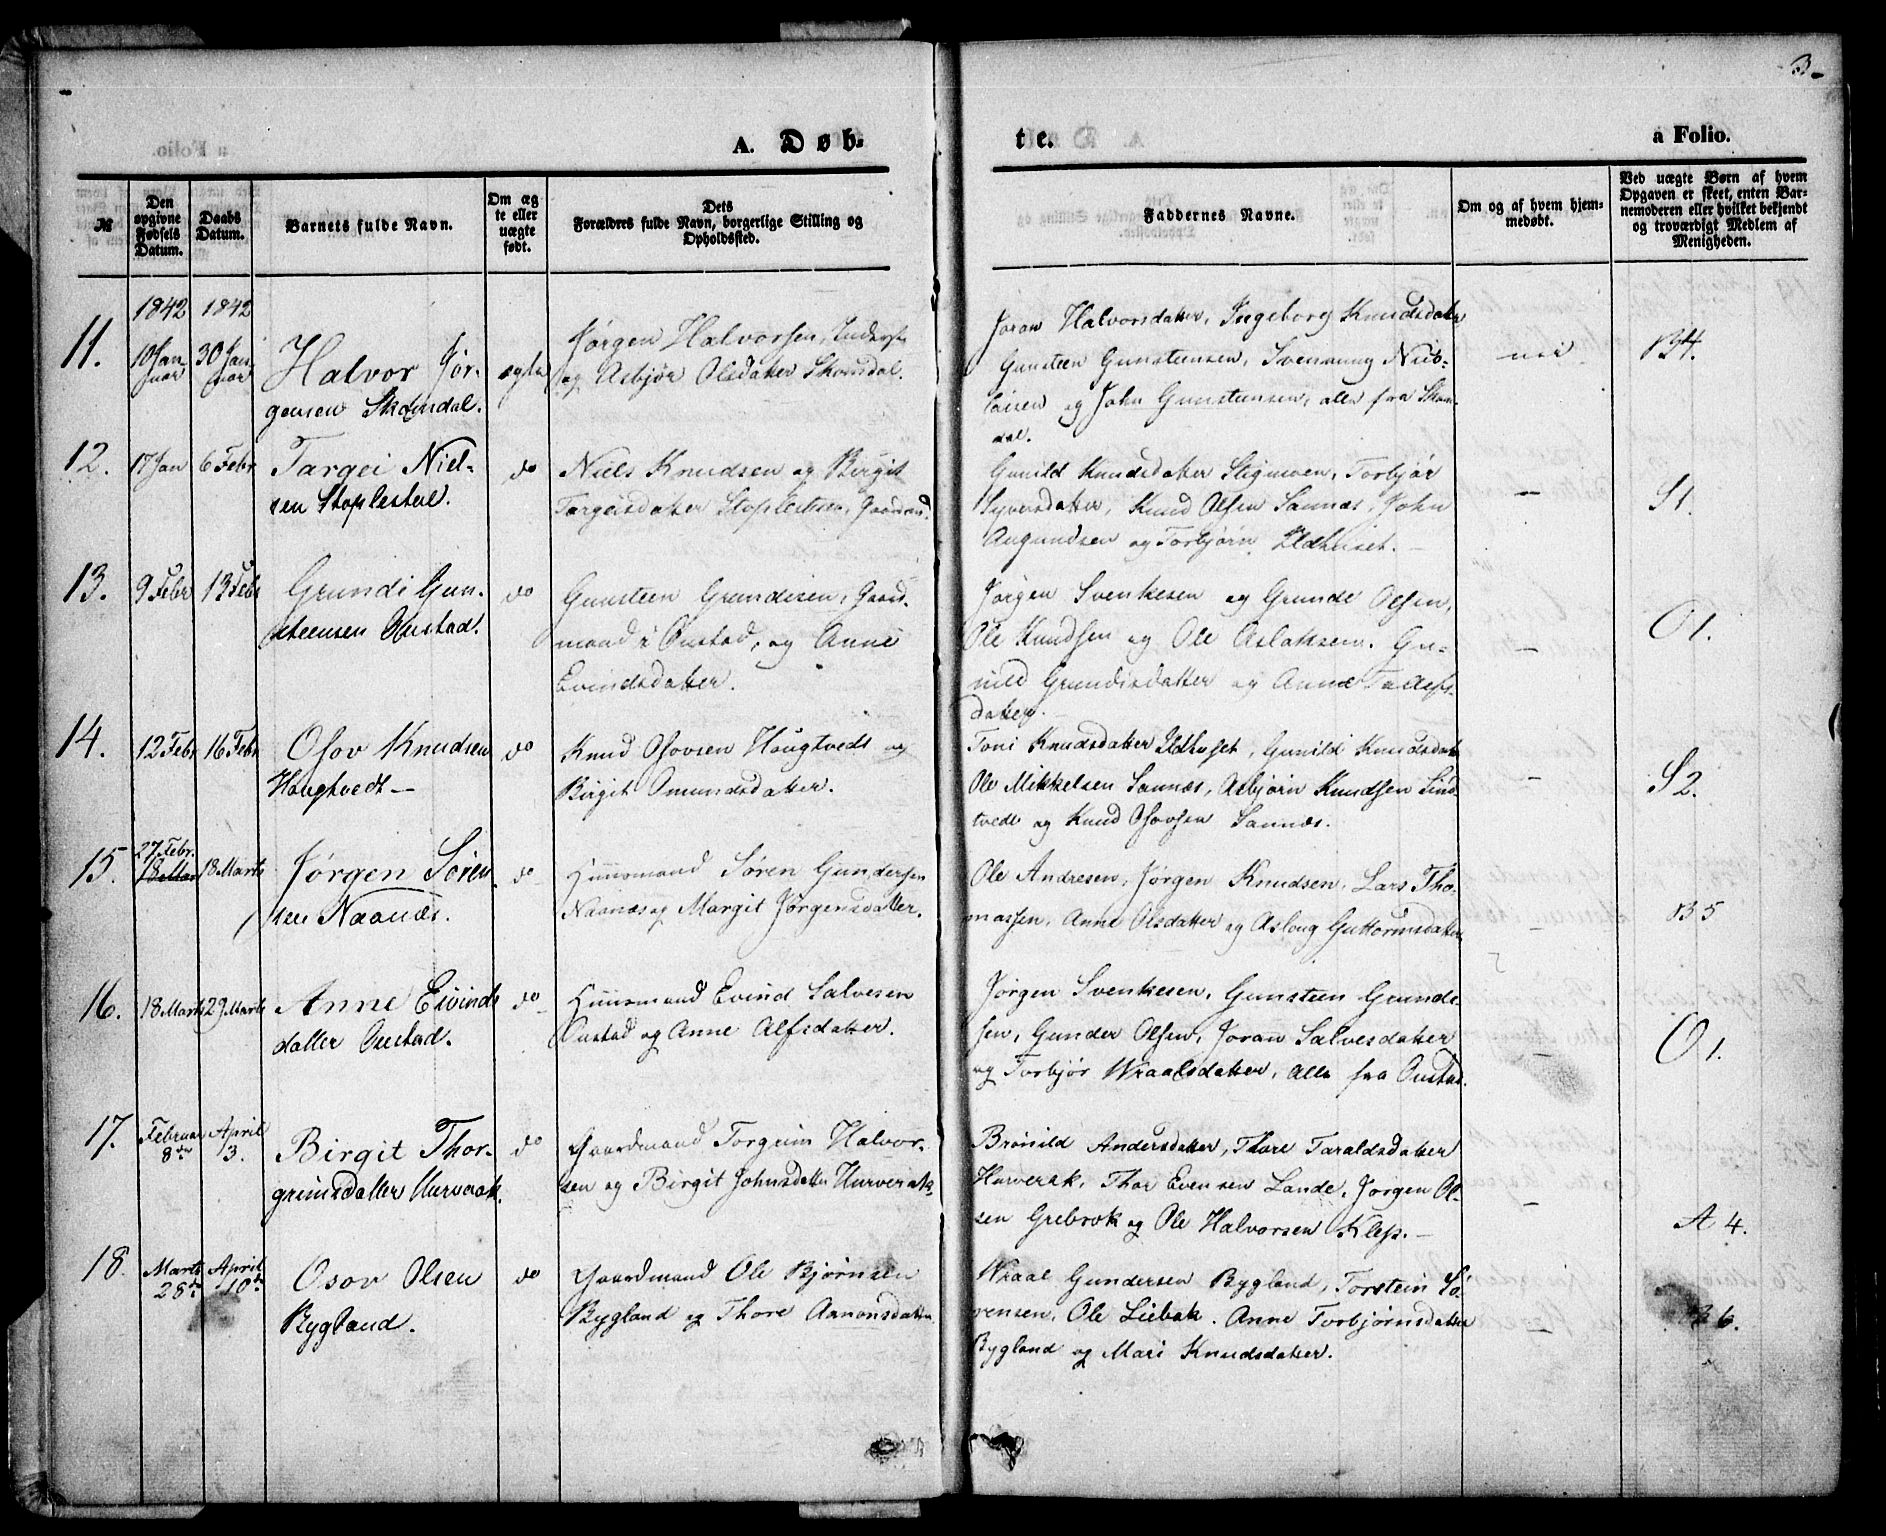 3.
A. Døb-
te.
a Folio.
№
Den opgivne Fødsels Datum.
Daabs Datum.
Barnets fulde Navn.
Om ægte eller uægte født.
Dets
Forældres fulde Navn, borgerlige Stilling og
Opholdssted.
Faddernes Navne.
Om og af hvem hjem-
medøbt.
Ved uægte Børn af hvem
Opgaven er skeet, enten Bar-
nemoderen eller hvilket bekjendt
og troværdigt Medlem af
Menigheden.
1842 1842
11.
10 Jan
uar
30 Jan
uar
Halvor Jør-
gensen Skomdal.
ægte
Jørgen Halvorsen, Inderst
og Asbjør Olsdatter Skomdal.
Joran Halvorsdatter, Ingeborg Knudsdatter
Gunsteen Gunsteensen, Svenning Nico-
laisen og John Gunsteensen, alle fra Skom-
dal.
nei
B4.
12.
17 Jan
6 Febr
Targei Niel-
sen Stoplesteen.
do
Niels Knudsen og Birgit
Targeisdatter Stoplesteen, Gaardmd.
Gunild Knudsdatter Stigmoen, Torbjør
Syversdatter, Knud Olsen Sannæs, John
Augundsen og Torbjørn Ildhuset. —
—
S1.
13.
9 Febr
13 Febr
Grundi Gun-
steensen Oustad.
do
Gunsteen Grundisen, Gaard-
mand i Oustad, og Anne
Evindsdatter.
Jørgen Svenkesen og Grunde Olsen,
Ole Knudsen og Ole Aslaksen. Gu-
nild Grundisdatter og Anne Tallefs-
datter.
—
O1.
14.
12 Febr
16 Febr
Osov Knudsen
Hougtvedt —
do
Knud Osovsen Hougtvedt og
Birgit Omundsdatter.
Toni Knudsdatter Ildhuset, Gunild Knudsdatt
Ole Mikkelsen Sannæs, Asbjørn Knudsen Lind-
tvedt og Knud Osovsen Sannæs.
—
S2.
15.
27 Febr.
18 Mar
18 Marts
Jørgen Søren
sen Naanæs.
do
Huusmand Søren Gundersen
Naanæs og Margit Jørgensdatter.
Ole Andresen, Jørgen Knudsen, Lars Tho-
massen, Anne Olsdatter og Aslaug Guttormsdatter
—
B5
16.
18 Marts
29 Marts
Anne Eivinds
datter Oustad.
do
Huusmand Evind Salvesen
Oustad og Anne Alfsdatter.
Jørgen Svenkesen, Gunsteen Grundi-
sen, Gunder Olsen, Joran Salvesdatter
og Torbjør Wraalsdatter, alle fra Oustad.
—
O1.
17.
Februar
8de
April
3.
Birgit Thor-
grimsdatter Hurverak.
do
Gaardmand Torgrim Halvor-
sen og Birgit Johnsdatter Hurverak.
Brønild Andersdatter, Thore Taraldsdatter
Hurverak, Thor Evensen Lande, Jørgen Ol-
sen Grebrok og Ole Halvorsen Klep. —
—
A 4.
18.
Marts
28de
April
10de
Osov Olsen
Bygland.
do
Gaardmand Ole Bjørnsen
Bygland og Thore Aanonsdatter
Wraal Gundersen Bygland, Torstein Sø-
rensen, Ole Liebak. Anne Torbjørnsdatter
Bygland og Mari Knudsdatter.
—
B 6.